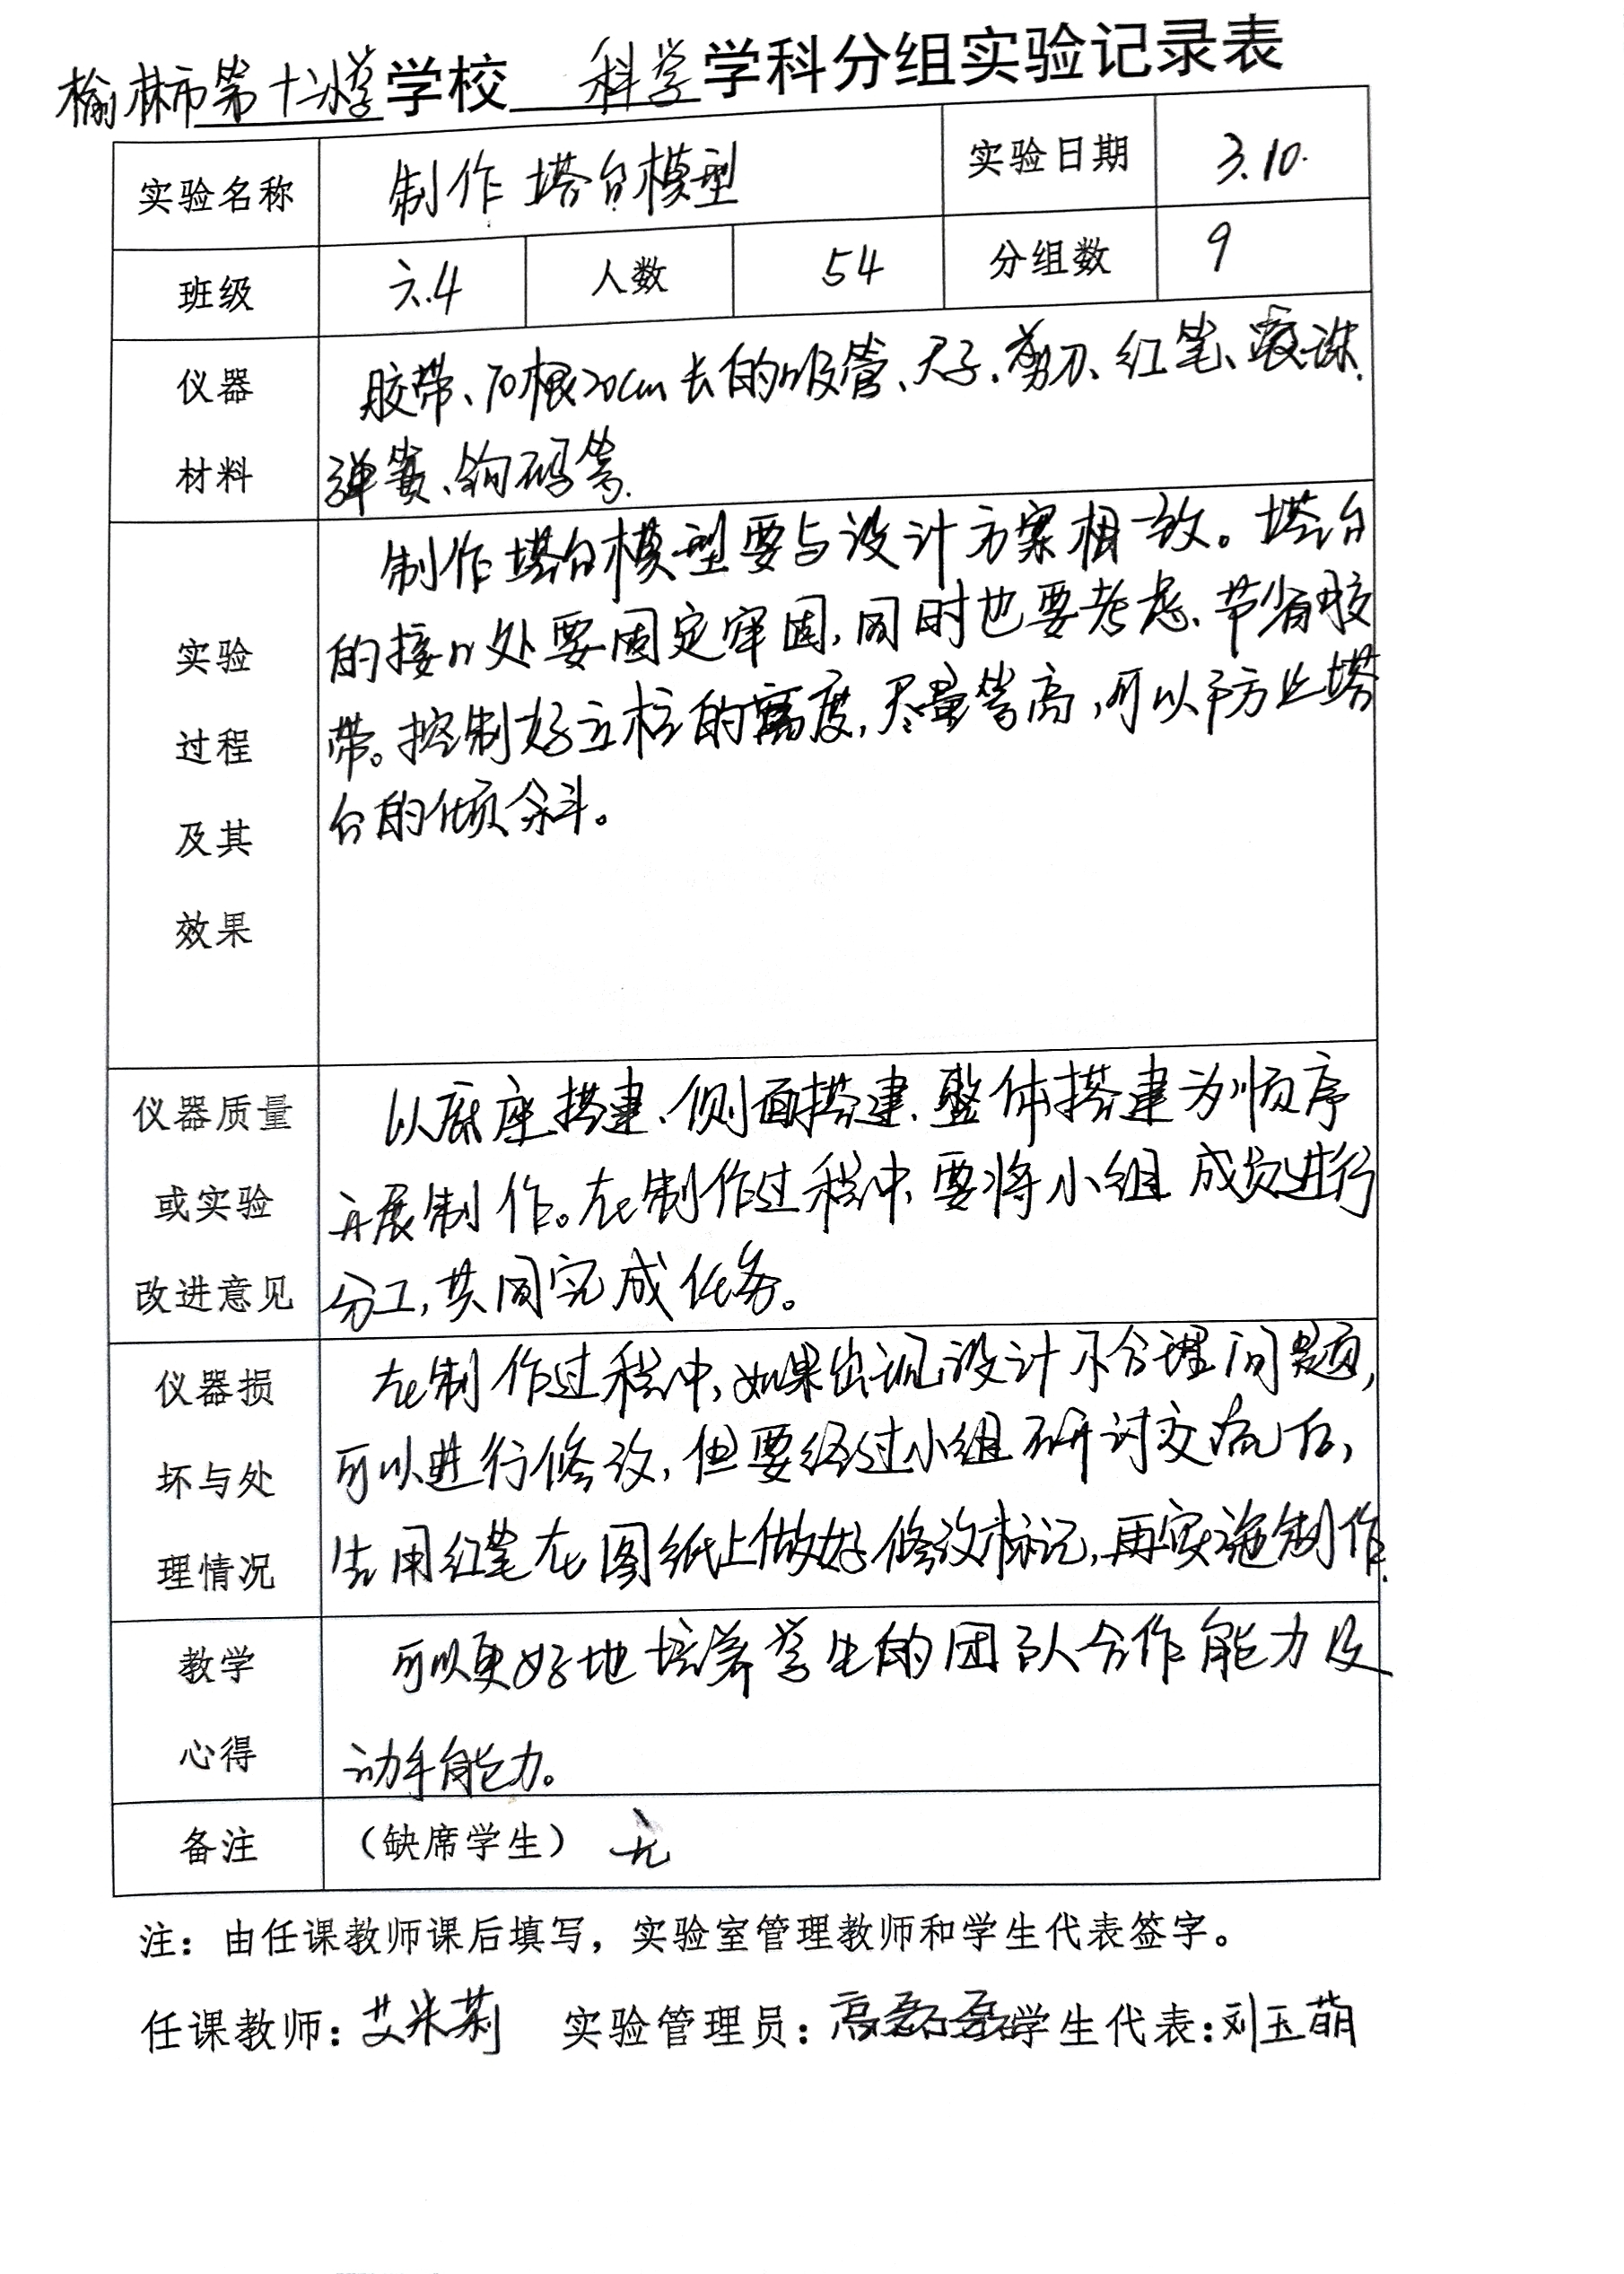 榆林市第十小学学校 科学 学科分组实验记录表
实验名称 制作塔台模型 实验日期 3.10.
班级 六.4 人数 54 分组数 9
仪器
材料
胶带、70根20cm长的吸管、尺子、剪刀、红笔、滚珠、
弹簧、钩码等.
实验
过程
及其
效果
制作塔台模型要与设计方案相一致。塔台
的接口处要固定牢固,同时也要考虑、节省胶
带。控制好立柱的高度,尽量等高,可以防止塔
台的倾斜。
仪器质量
或实验
改进意见
以底座搭建、侧面搭建、整体搭建为顺序
开展制作。在制作过程中,要将小组成员进行
分工,共同完成任务。
仪器损
坏与处
理情况
在制作过程中,如果出现设计不合理问题,
可以进行修改,但要经过小组研讨交流后,
先用红笔在图纸上做好修改标记,再实施制作.
教学
心得
可以更好地培养学生的团队合作能力及
动手能力。
备注 (缺席学生) 无
注：由任课教师课后填写，实验室管理教师和学生代表签字。
任课教师:艾米莉 实验管理员:高磊磊 学生代表:刘玉萌